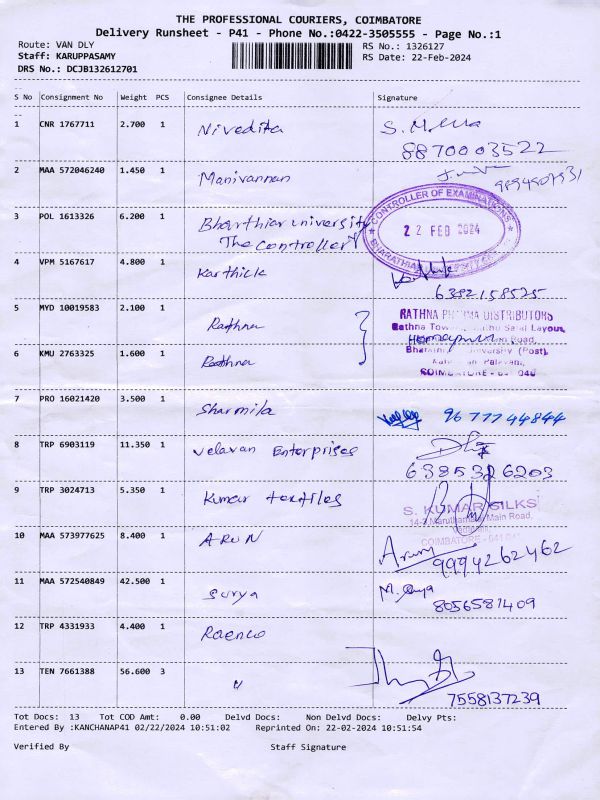 THE PROFESSIONAL COURIERS, COIMBATORE
Delivery Runsheet - P41 - Phone No.:0422-3505555 - Page No.:1
Route: VAN DLY
RS No.: 1326127
Staff: KARUPPASAMY
RS Date: 22-Feb-2024
DRS No.: DCJB132612701
S No Consignment No Weight PCS Consignee Details Signature
1 CNR 1767711 2.700 1 Nivedita
8870003522
2 MAA 572046240 1.450 1 Manivannan
3 POL 1613326 6.200 1 Bharthiar university
The controller
CONTROLLER OF EXAMINATIONS
22 FEB 2024
4 VPM 5167617 4.800 1 Karthick
6382158525
5 MYD 10019583 2.100 1 Rathna
RATHNA PHARMA DISTRIBUTORS
6 KMU 2763325 1.600 1 Rathna
7 PRO 16021420 3.500 1 Sharmila 9677744844
8 TRP 6903119 11.350 1 Velavan Enterprises
6385326203
9 TRP 3024713 5.350 1 Kumar textiles
S. KUMAR SILKS
Main Road,
COIMBATORE
10 MAA 573977625 8.400 1 ARUN
Arun 9994262462
11 MAA 572540849 42.500 1 Surya
M. Surya
8056581409
12 TRP 4331933 4.400 1
13 TEN 7661388 56.600 3 "
7558137239
Tot Docs: 13 Tot COD Amt: 0.00 Delvd Docs: Non Delvd Docs: Delvy Pts:
Entered By :KANCHANAP41 02/22/2024 10:51:02 Reprinted On: 22-02-2024 10:51:54
Verified By Staff Signature